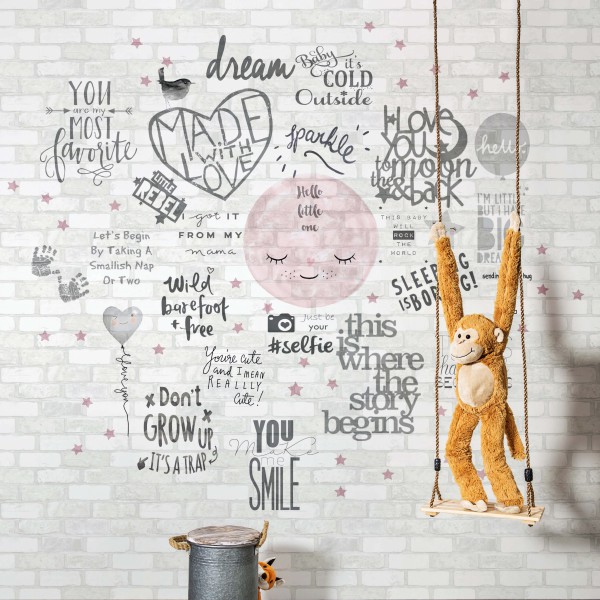 dream
Baby
it's
COLD
Outside
YOU
are my
MOST
favorite
MADE
with
LOVE
sparkle
I LOVE
YOU
to the moon
& back
hello
little
REBEL
I got it
from my
mama
Hello
little
one
THIS BABY
WILL
ROCK
THE
WORLD
I'M LITTLE
BUT I HAVE
BIG
DREAMS
Let's Begin
By Taking A
Smallish Nap
Or Two
SLEEPING
IS BORING!
hug
Wild
barefoot
+ free
Just be
your
#selfie
this
is
where
the
story
begins
I love you
You're cute
and I mean
REALLLY
Cute!
Don't
GROW UP
IT'S A TRAP
YOU
Make
me
SMILE